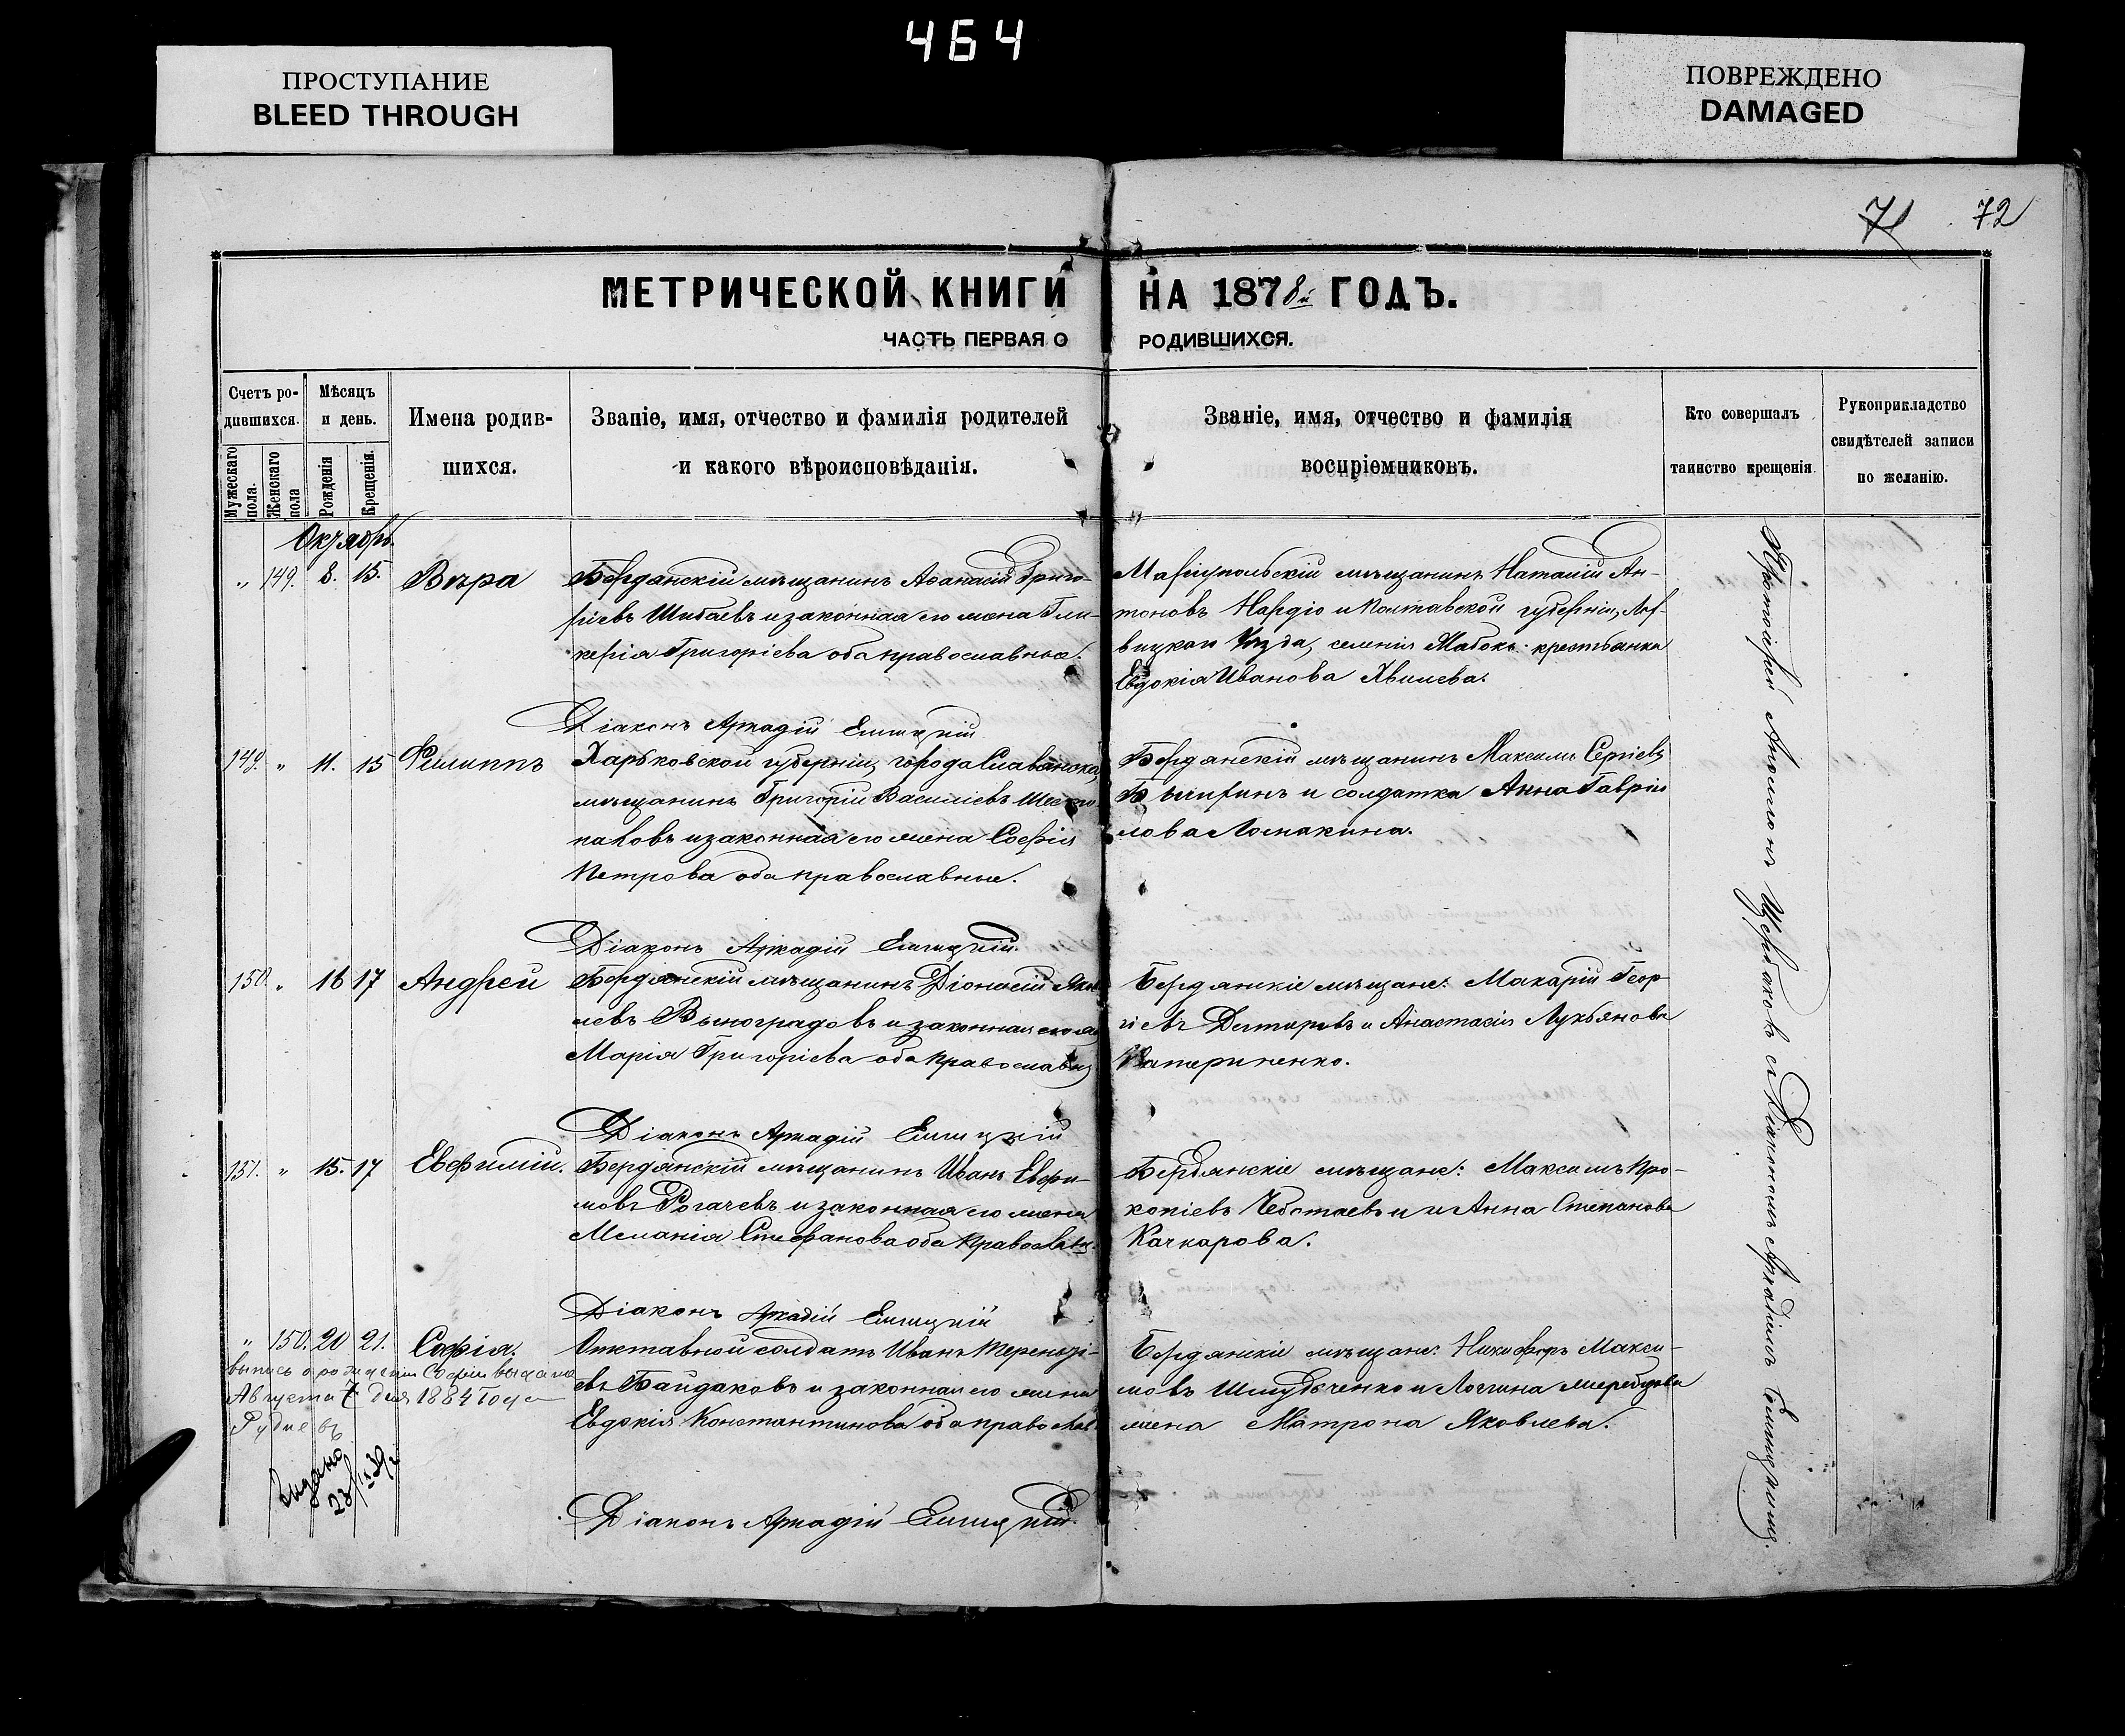 464
ПРОСТУПАНИЕ
BLEED THROUGH
ПОВРЕЖДЕНО
DAMAGED
71 72
МЕТРИЧЕСКОЙ КНИГИ НА 1878й ГОДЪ.
ЧАСТЬ ПЕРВАЯ О РОДИВШИХСЯ.
Счетъ ро-
дившихся.
Мужескаго пола.
Женскаго пола
Мѣсяцъ
и день.
Рожденія
Крещенія.
Имена родив-
шихся.
Званіе, имя, отчество и фамилія родителей
и какого вѣроисповѣданія.
Званіе, имя, отчество и фамилія
воспріемниковъ.
Кто совершалъ
таинство крещенія.
Рукоприкладство
свидѣтелей записи
по желанію.
Октябрь.
„ 149. 8. 15. Вѣра
Бердянскій мѣщанинъ Аѳанасій Григо-
ріевъ Шибаевъ и законная его жена Гли-
керія Григоріева оба православные.
Маріупольскій мѣщанинъ Наталій Ан-
тоновъ Нардіо и Полтавской губерніи,
уѣзда, селенія крестьянка
Евдокія Иванова Хвилева.
Діаконъ Аркадій Елицкій
149. „ 11. 15 Филиппъ
Харьковской губерніи, города Славянска
мѣщанинъ Григорій Василіевъ
и законная его жена Софія
Петрова оба православные.
Бердянскій мѣщанинъ Максимъ Сергіевъ
и солдатка Анна Гаврі
лова Ломакина.
Діаконъ Аркадій Елицкій.
150. „ 16 17 Андрей
Бердянскій мѣщанинъ Діонисій Яков
левъ Виноградовъ и законная его
Марія Григоріева оба православн
Бердянскіе мѣщане: Макарій Геор-
гіевъ и Анастасія Лукьянова
Катериненко.
Діаконъ Аркадій Елицкій
151. „ 15. 17 Евфимій.
Бердянскій мѣщанинъ Иванъ Евфи-
мовъ Рогачевъ и законная его жена
Меланія Стефанова оба православн.
Бердянскіе мѣщане: Максимъ Про-
копіевъ и Анна Степанова
Качкарова.
Діаконъ Аркадій Елицкій
„ 150. 20 21. Софія.
Отставной солдатъ Иванъ Терентьі-
евъ Байдаковъ и законная его жена
Евдокія Константинова оба православ.
Бердянскіе мѣщане: Никифоръ Макси-
мовъ и Логгина
жена Матрона Яковлева.
выпись о рожденіи Софіи выдана
Августа 7 дня 1884 года
Рудневъ
Видано
Діаконъ Аркадій Елицкій.
Протоіерей Аполлонъ Щербаковъ съ Діакономъ Аркадіемъ Елицкимъ.